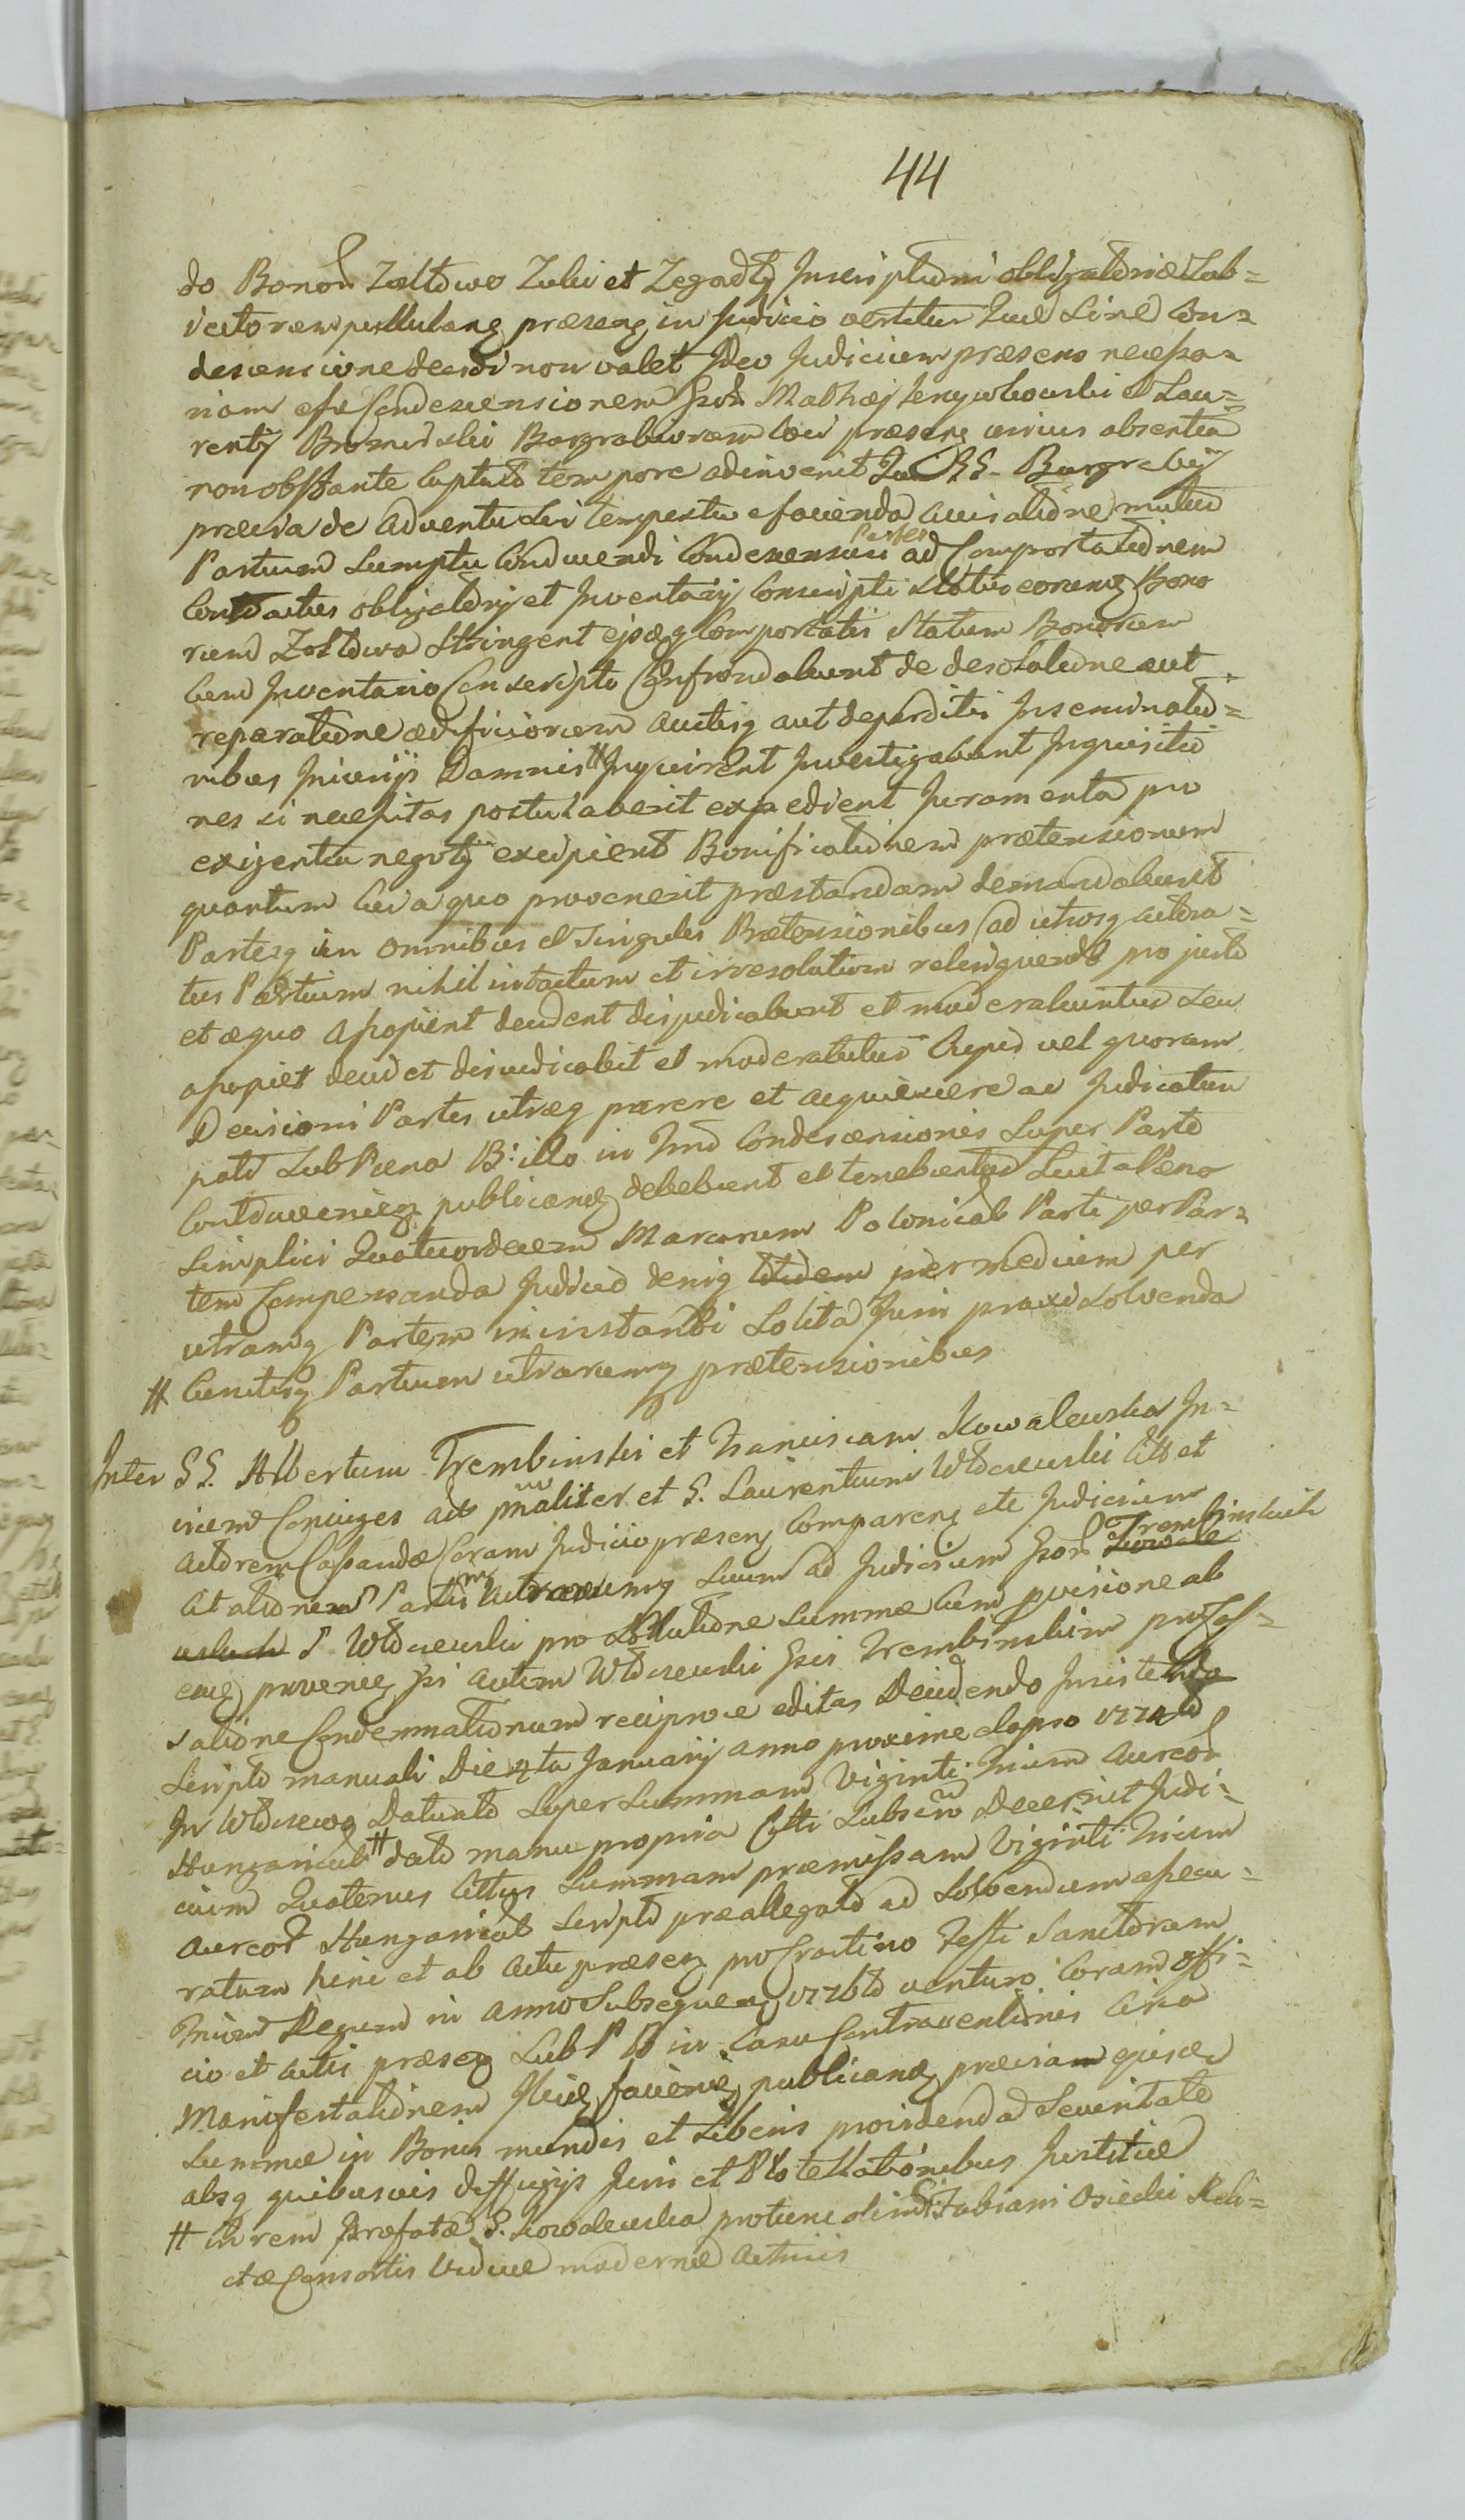 44
do Bonor Zoltowo Zuki et Zegadły Inscriptioni obligatoriæ Sub=
vertitur Quæ Sine Con=
descensione decidi non valet Ideo Judicium præsens necessa=
riam esse Condescensionem Gsor Mathæj et Lau=
rentij Burgrabiorum loci præsens unius absentia
non obstante captato tempore adinvenit Qui GG. Burgrabij
prævia de adventu Sui tempestive facienda avisatione mutuo
Partium Sumptu Conducendi Condescensuri Partes ad Comportationem
Contractus obligatorij et Inventarij Conscripti Status eorumq Bono
rum Zoltowa Stringent ejsdeq Comportatis Statum Bonorum
Cum Inventario Conscripto Confrontabunt de desolatione aut
reparatione ædificiorum auctisq aut deperditis Inseminatio=
nibus Injurijs Damnis # Inquirent Investigabunt Inquisitio
nes si necessitas postulaverit expedient Juramenta pro
exigentia negotij excipient Bonificationem prætensionum
quantum Cui a quo provenerit præstandam demandabunt
Partesq in omnibus et Singulis Prætensionibus ad utrosq
tus Partium nihil intactum et irresolutum relinquendo pro justo
et æquo assopient decident disjudicabunt et moderabuntur Seu
assopiet decidet disjudicabit et moderabitur Cujus vel quorum
Decisioni Partes utræq parere et acquiescere ac Judicatum
pati Sub Pæna B: illo in Condescensionis Super Parte
publicand debebunt et tenebuntur Luita Pæna
Simplici Quatuordecem Marcarum Polonical Parti per Par=
tem Compensanda Judicio deniq itidem per medium per
utramq Partem in instanti Solita Juris praxi Solvenda
# Cunctisq Partium utrarumq prætensionibus
Inter GG. Albertum Trembinski et Franciscam Kowalewska In=
vicem Conjuges act et G. Laurentium Cit et
Actorem Cassandæ Coram Judicio præsens Comparens etc Judicium
Citationem Partis utrarumq Suum ad Judicium Gsor Trembinskich
G pro Solutione Summæ Cum provisione ab
eaq provenien Gsi autem Gsis Trembinskim pro Cas=
satione Condemnationum reciproce editas Decidendo Insistendo
Scripto manuali Die 4ta Januarij anno proxime elapso 1774to
In Datuato Super Summam Viginti Trium Aureor
Hungarical # dato manu propria Citti Subscro Decernit Judi=
cium Quatenus Cittus Summam præmissam Viginti Trium
Aureor Hungarical Scripto præallegato ad Solvendum assecu=
ratum hinc et ab Actu præsen pro Crastino Festi Sanctorum
Trium Regum in anno Subsequen 1776to venturo Coram offi=
cio et Actis præsen Sub P B in Casu Contraventionis Circa
Manifestationem publicand præviam ejusd
Summæ in Bonis mundis et Liberis providenda Securitate
absq quibusvis diffugijs Juris et Protestationibus Justitiæ
# In rem Præfatæ G. Kowalewska protunc olim G. Fabiani Osiecki Reli=
ctæ Consortis Viduæ modernæ Actricis